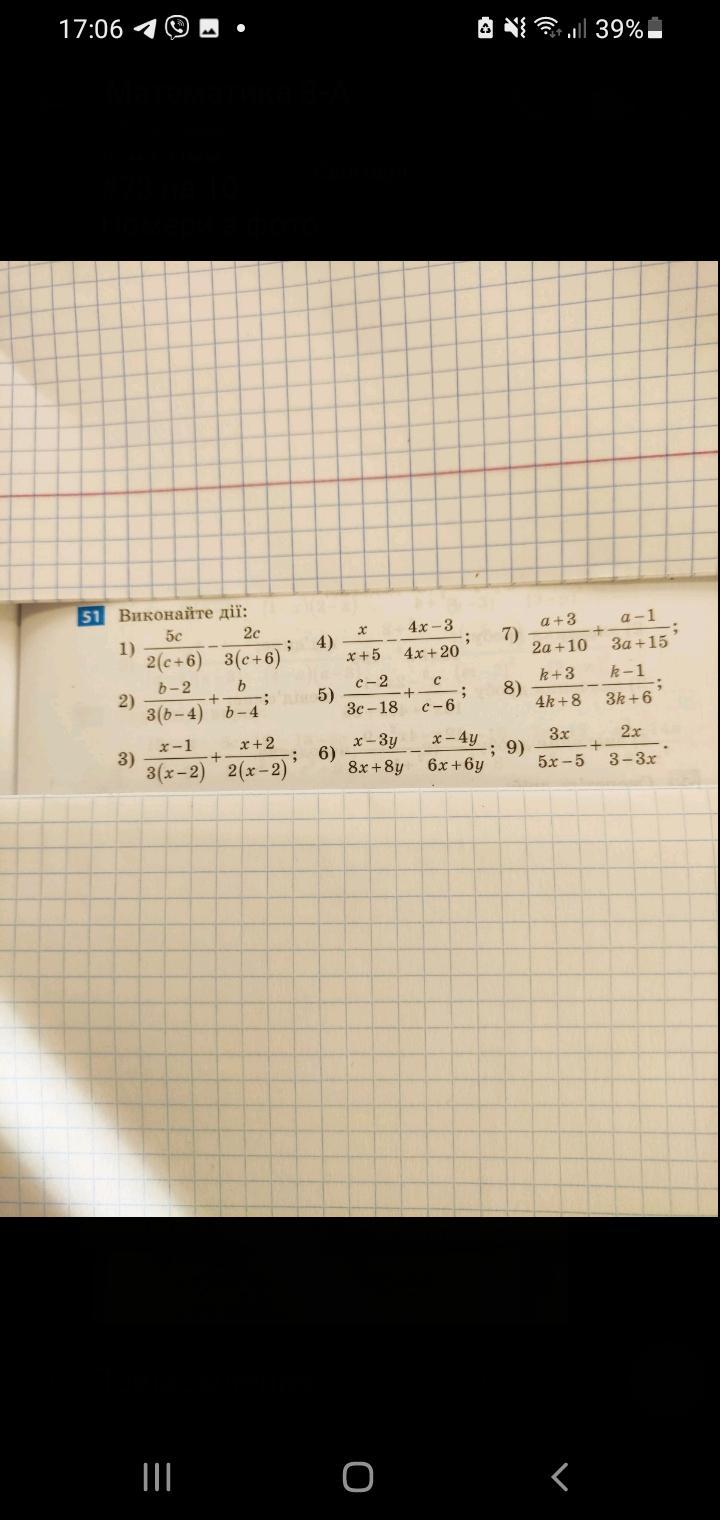 17:06 39%
Математика 8-А
51 Виконайте дії:
1) 5c/2(c+6) − 2c/3(c+6); 4) x/x+5 − 4x−3/4x+20; 7) a+3/2a+10 + a−1/3a+15;
2) b−2/3(b−4) + b/b−4; 5) c−2/3c−18 + c/c−6; 8) k+3/4k+8 − k−1/3k+6;
3) x−1/3(x−2) + x+2/2(x−2); 6) x−3y/8x+8y − x−4y/6x+6y; 9) 3x/5x−5 + 2x/3−3x.